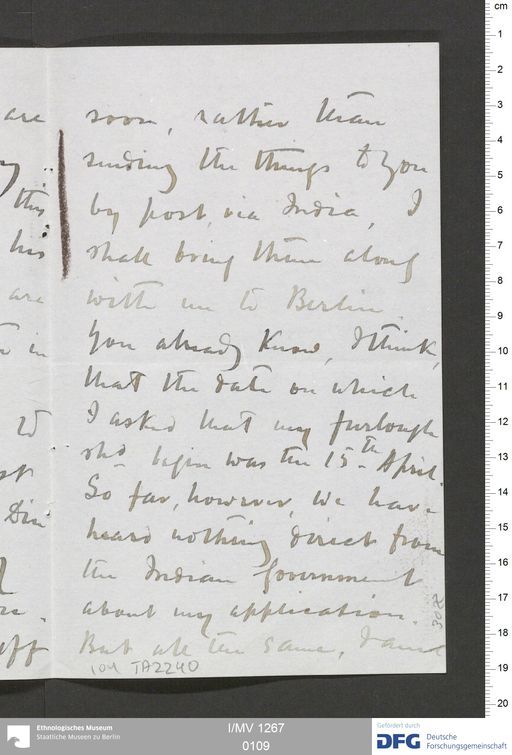 are
this
his
are
in
W
st
Din
re.
uff
soon, rather than
sending the things to you
by post, via India, I
shall bring them along
with me to Berlin.
You already know, I think,
that the date on which
I asked that my furlough
shd begin was the 15th April.
So far, however, we have
heard nothing direct from
the Indian Government
about my application.
But all the same, I and
104 TA2240
302
cm
1
2
3
4
5
6
7
8
9
10
11
12
13
14
15
16
17
18
19
20
Ethnologisches Museum
Staatliche Museen zu Berlin
I/MV 1267
0109
Gefördert durch
DFG Deutsche
Forschungsgemeinschaft